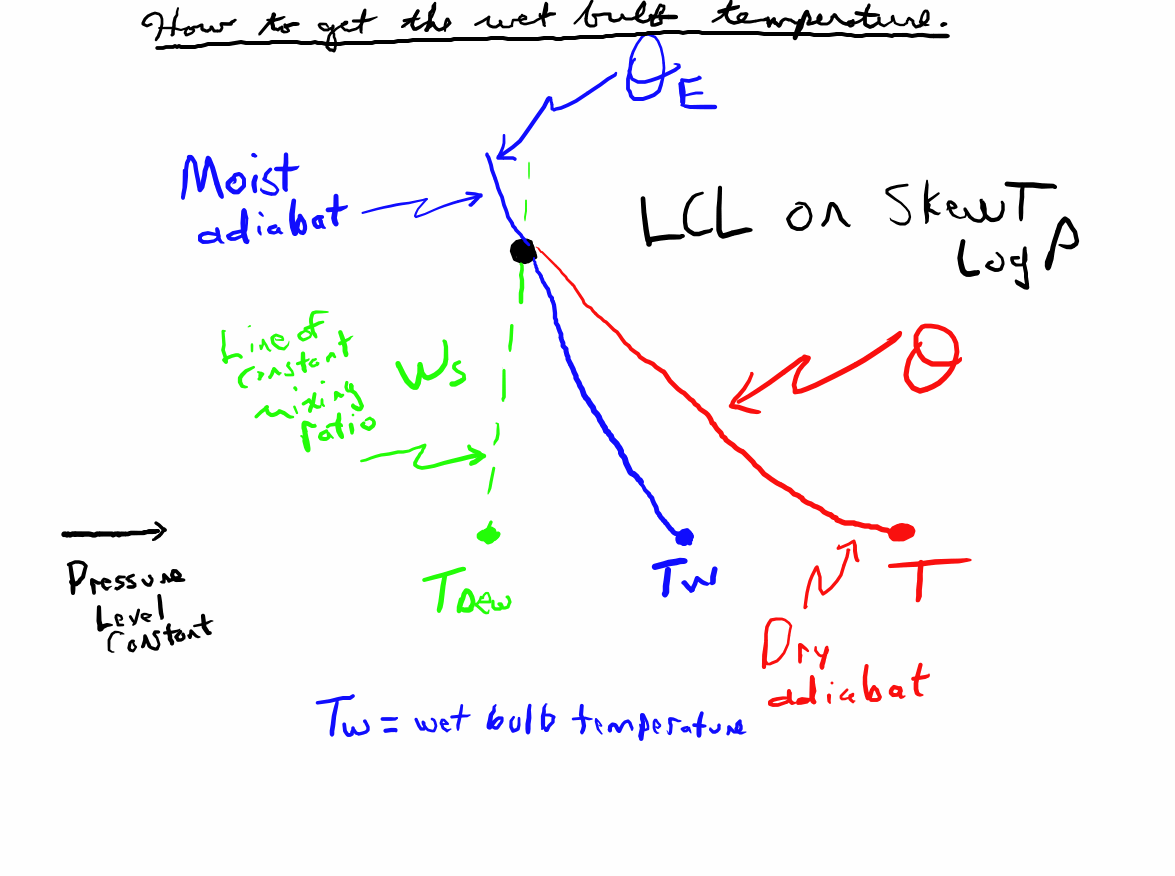 How to get the wet bulb temperature.
θE
Moist
adiabat
LCL on SkewT
Log P
Line of
constant
mixing
ratio
Ws
θ
Pressure
Level
Constant
TDew
Tw
T
Dry
adiabat
Tw = wet bulb temperature